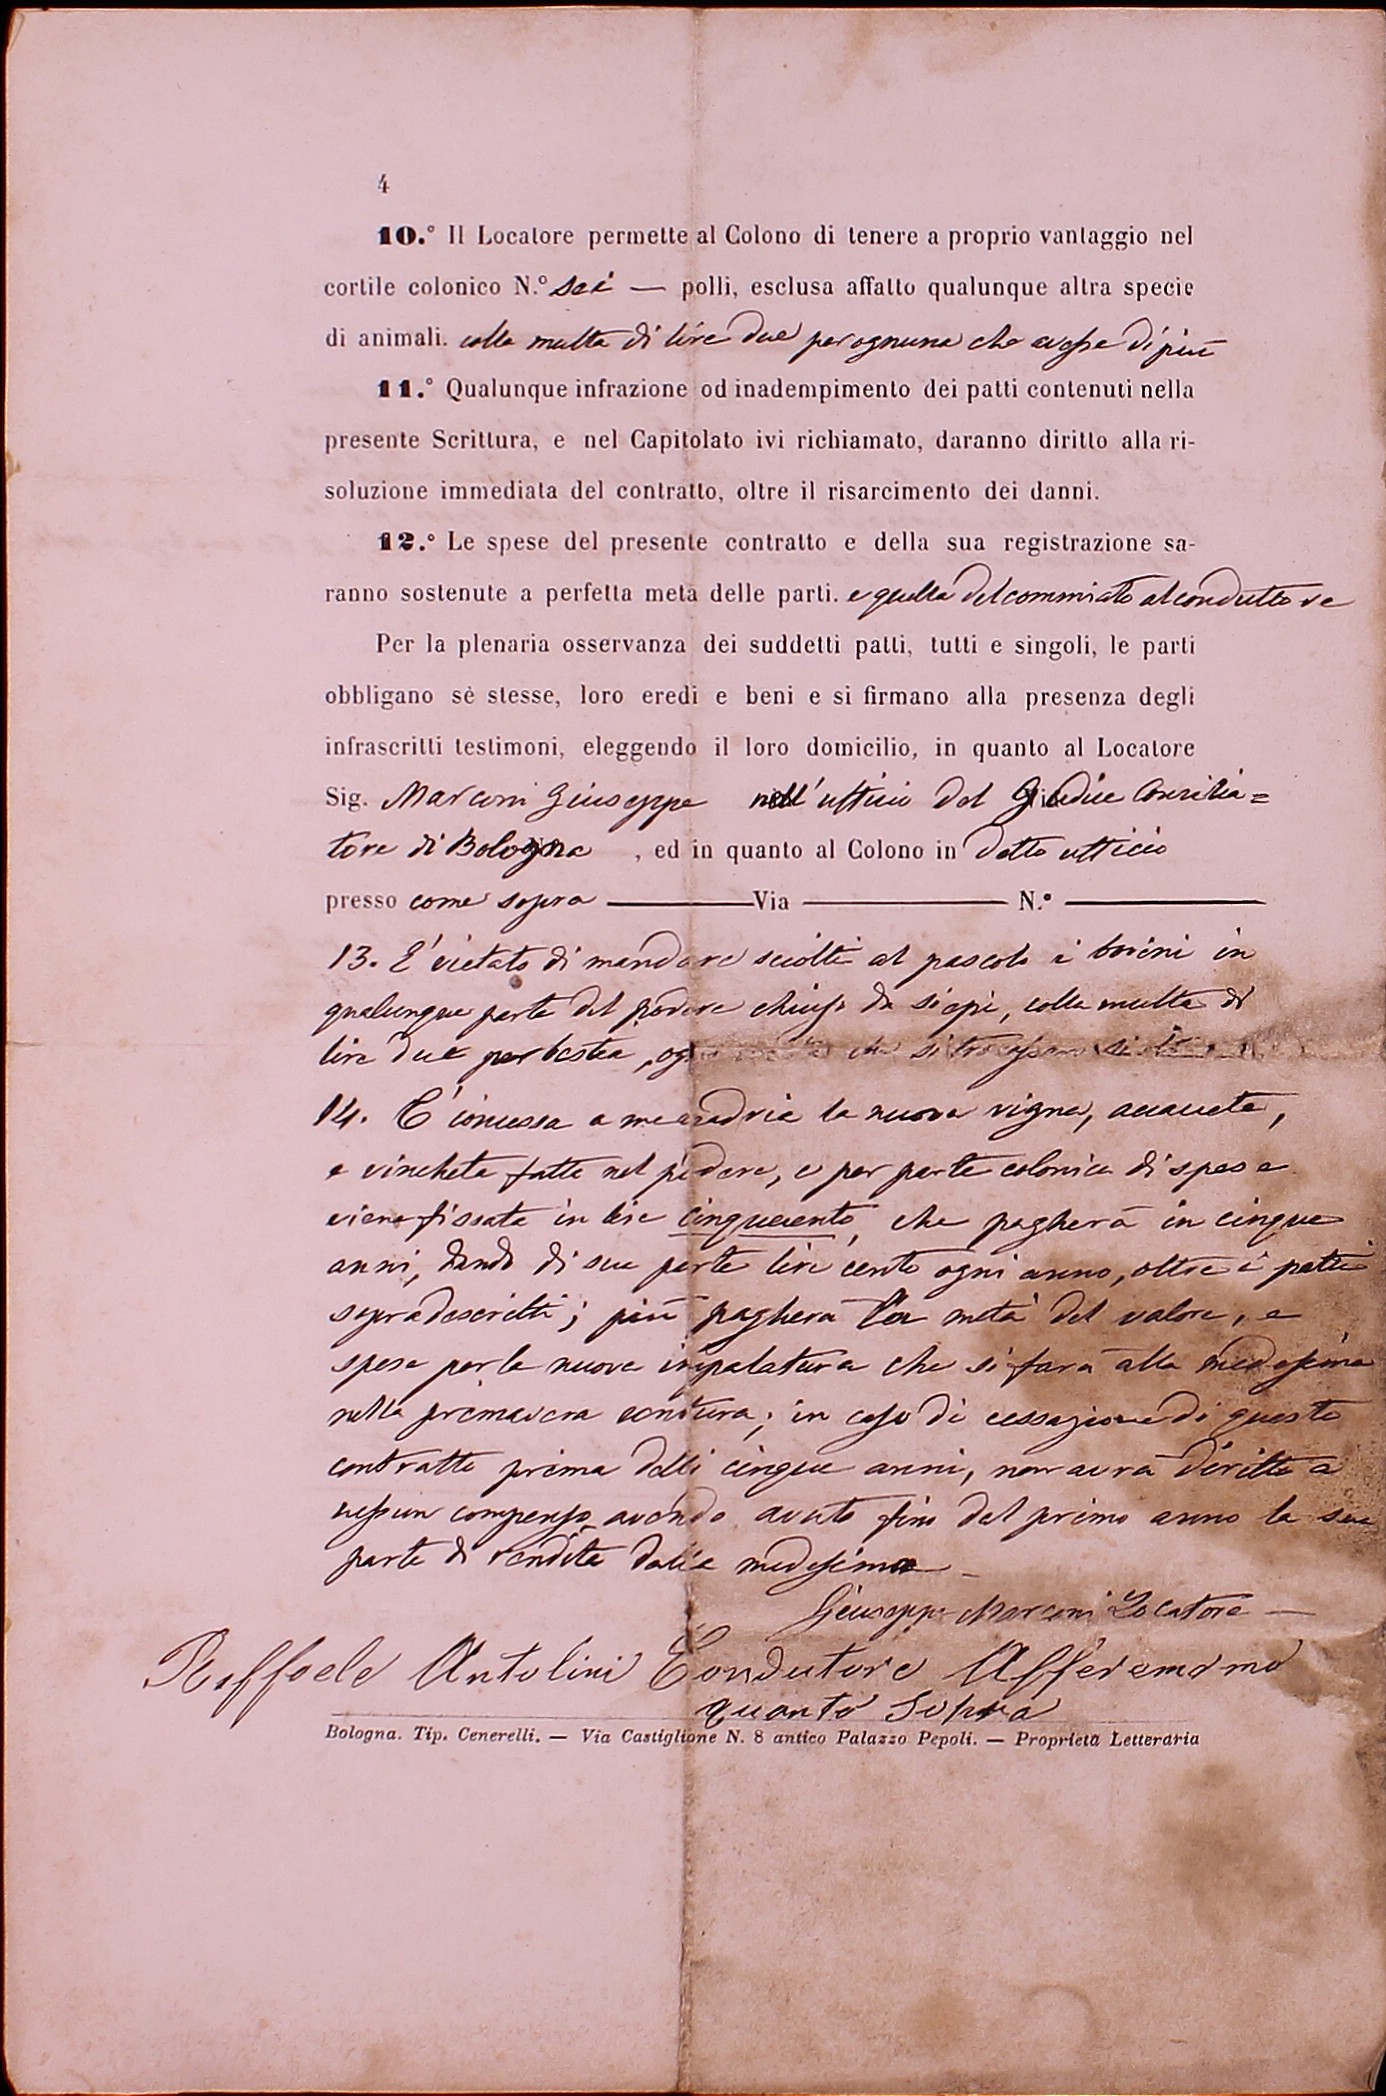 4
10.° Il Locatore permette al Colono di tenere a proprio vantaggio nel
cortile colonico N.° sei — polli, esclusa affatto qualunque altra specie
di animali. colla multa di lire due per ognuna che avesse di più
11.° Qualunque infrazione od inadempimento dei patti contenuti nella
presente Scrittura, e nel Capitolato ivi richiamato, daranno diritto alla ri-
soluzione immediata del contratto, oltre il risarcimento dei danni.
12.° Le spese del presente contratto e della sua registrazione sa-
ranno sostenute a perfetta metà delle parti. e quella del commiato al conduttore
Per la plenaria osservanza dei suddetti patti, tutti e singoli, le parti
obbligano sè stesse, loro eredi e beni e si firmano alla presenza degli
infrascritti testimoni, eleggendo il loro domicilio, in quanto al Locatore
Sig. Marconi Giuseppe nell'ufficio del Giudice Concilia=
tore di Bologna , ed in quanto al Colono in detto ufficio
presso come sopra — Via — N.° —
13. E' vietato di mandare sciolti al pascolo i bovini in
qualunque parte del podere chiusa da siepi, colla multa di
lire due per bestia, che si trovassero
14. E' concessa a mezzadria la nuova vigna,
e vincheta fatta nel podere, e per parte colonica di spese
viene fissata in lire cinquecento, che pagherà in cinque
anni, dando di sua parte lire cento ogni anno, oltre i patti
sopradescritti; più pagherà la metà del valore, e
spese per la nuova impalatura che si farà alla medesima
nella primavera ventura; in caso di cessazione di questo
contratto prima delli cinque anni, non avrà diritto a
nessun compenso avendo avuto fino dal primo anno la sua
parte di rendita dalla medesima
Giuseppe Marconi Locatore —
Raffaele Antolini Condutore Afferemamo
quanto Sopra
Bologna. Tip. Cenerelli. — Via Castiglione N. 8 antico Palazzo Pepoli. — Proprietà Letteraria